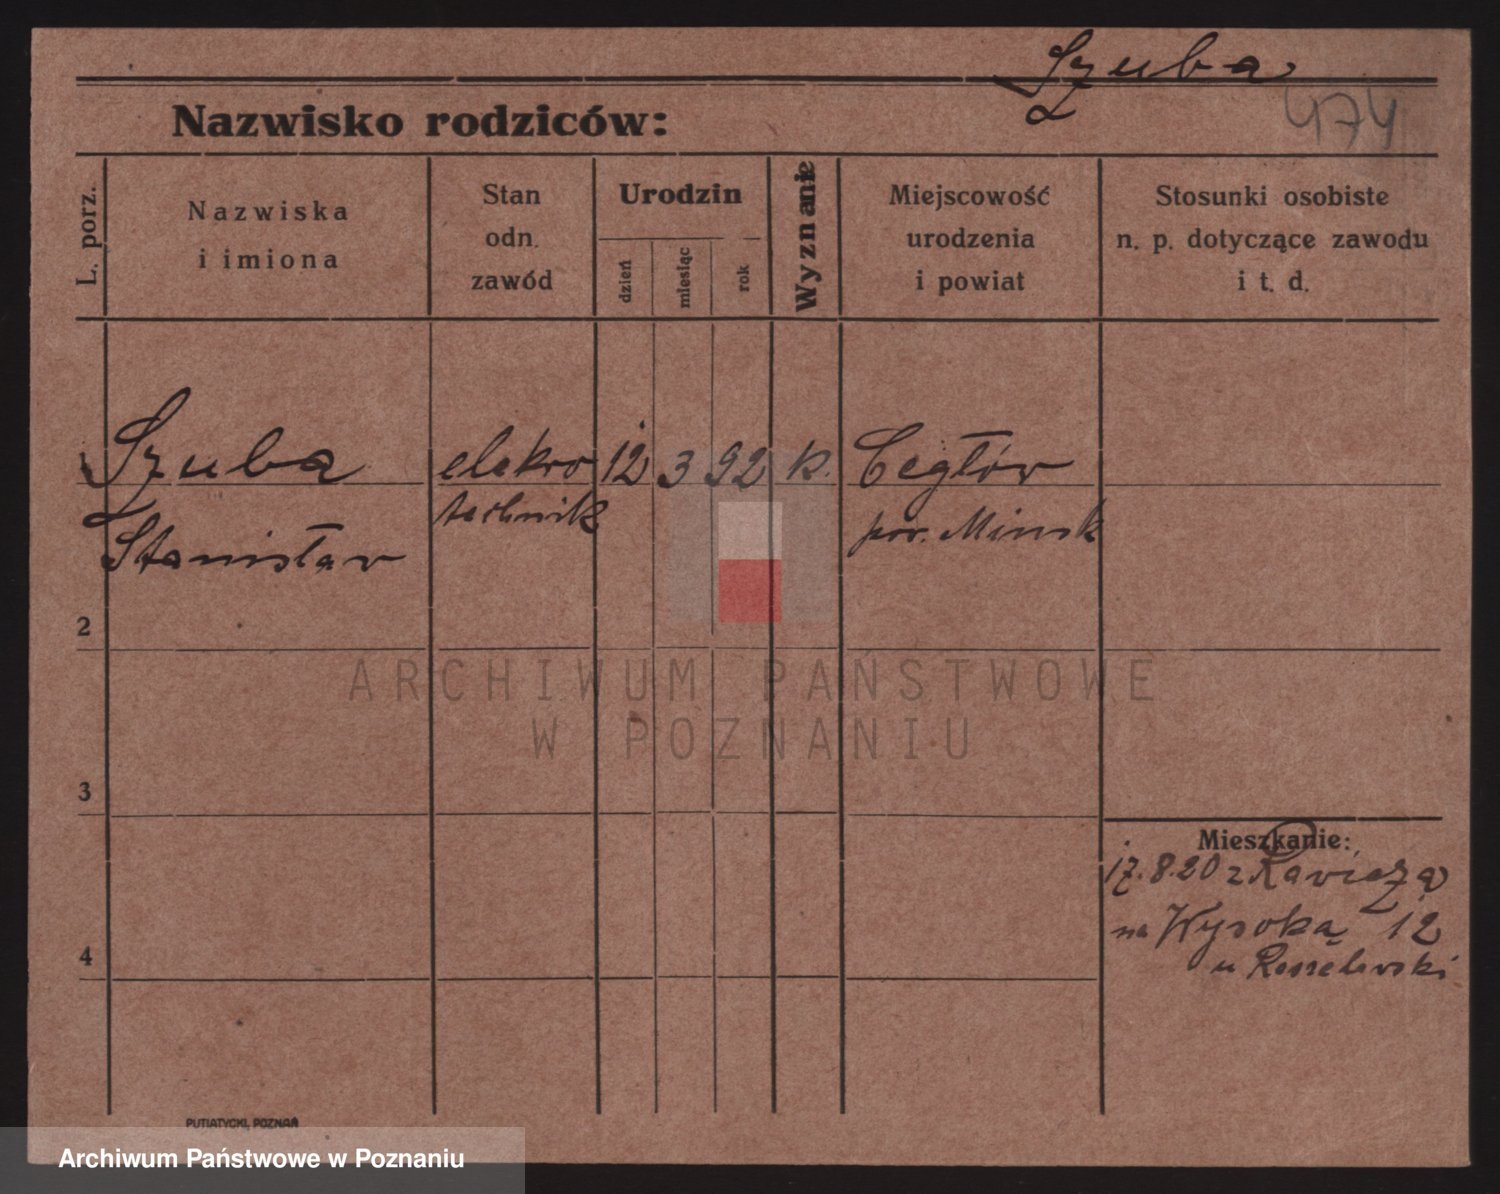 Szuba
Nazwisko rodziców:
474
L. porz.
Nazwiska
i imiona
Stan
odn.
zawód
Urodzin
dzień
miesiąc
rok
Wyznanie
Miejscowość
urodzenia
i powiat
Stosunki osobiste
n. p. dotyczące zawodu
i t. d.
1 Szuba elekro 12 3 92 k. Cegłów
Stanisław technik pow. Minsk
2
ARCHIWUM PAŃSTWOWE
W POZNANIU
3
Mieszkanie:
17.8.20 z
na Wysoką 12
4
u
PUTIATYCKI, POZNAŃ
Archiwum Państwowe w Poznaniu